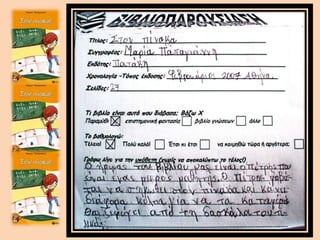 Στον πίνακα!
ΒΙΒΛΙΟΠΑΡΟΥΣΙΑΣΗ
Τίτλος: Στον πίνακα
Συγγραφέας: Μαρία Παπαγιάννη
Εκδότης: Πατάκη
Χρονολογία -Τόπος έκδοσης: Φεβρουάριος 2007 Αθήνα
Σελίδες: 27
Τι βιβλίο είναι αυτό που διάβασα; Βάζω Χ
Παραμύθι X επιστημονική φαντασία βιβλίο γνώσεων άλλο
Το βαθμολογώ:
Τέλειο! X Πολύ καλό! Έτσι κι έτσι να κοιμηθώ τώρα ή αργότερα;
Γράφω λίγα για την υπόθεση (χωρίς να αποκαλύπτω το τέλος!)
Ο ήρωας του βιβλίου μας είναι ο Πέτρος που
είναι ένας μικρός μαθητής. Ο Πέτρος φοβά-
ται να σηκωθεί στον πίνακα και κάνει
διάφορα κόλπα για να τα καταφέρει
Θα ξεφύγει από τη δασκάλα του
Στον πίνακα!
Στον πίνακα!
Στον πίνακα!